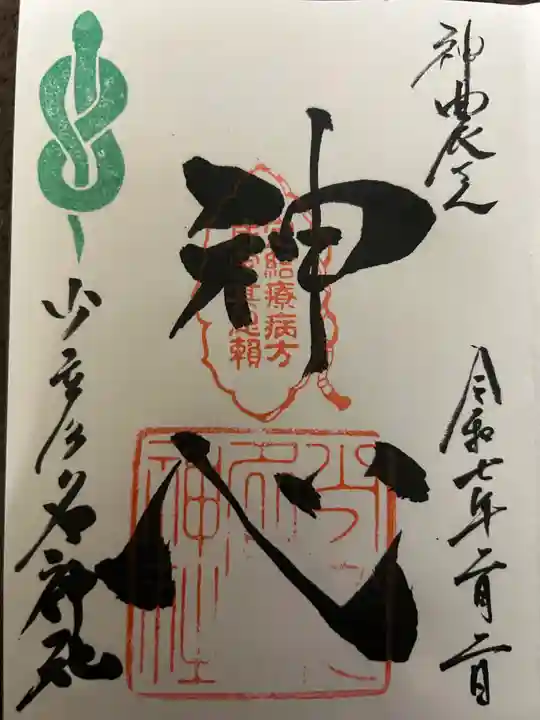 神農
神心
結療病方
賴
令和七年二月二日
少彦名神社
少彦名神社